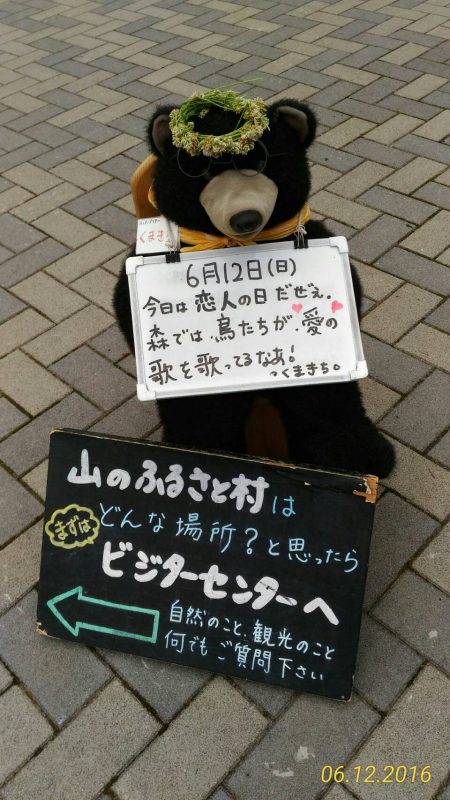 くまきち
6月12日(日)
今日は恋人の日だぜぇ。
森では鳥たちが愛の
歌を歌ってるなあ!
くまきち。
山のふるさと村は
まずは
どんな場所?と思ったら
ビジターセンターへ
自然のこと、観光のこと
何でもご質問下さい
06.12.2016